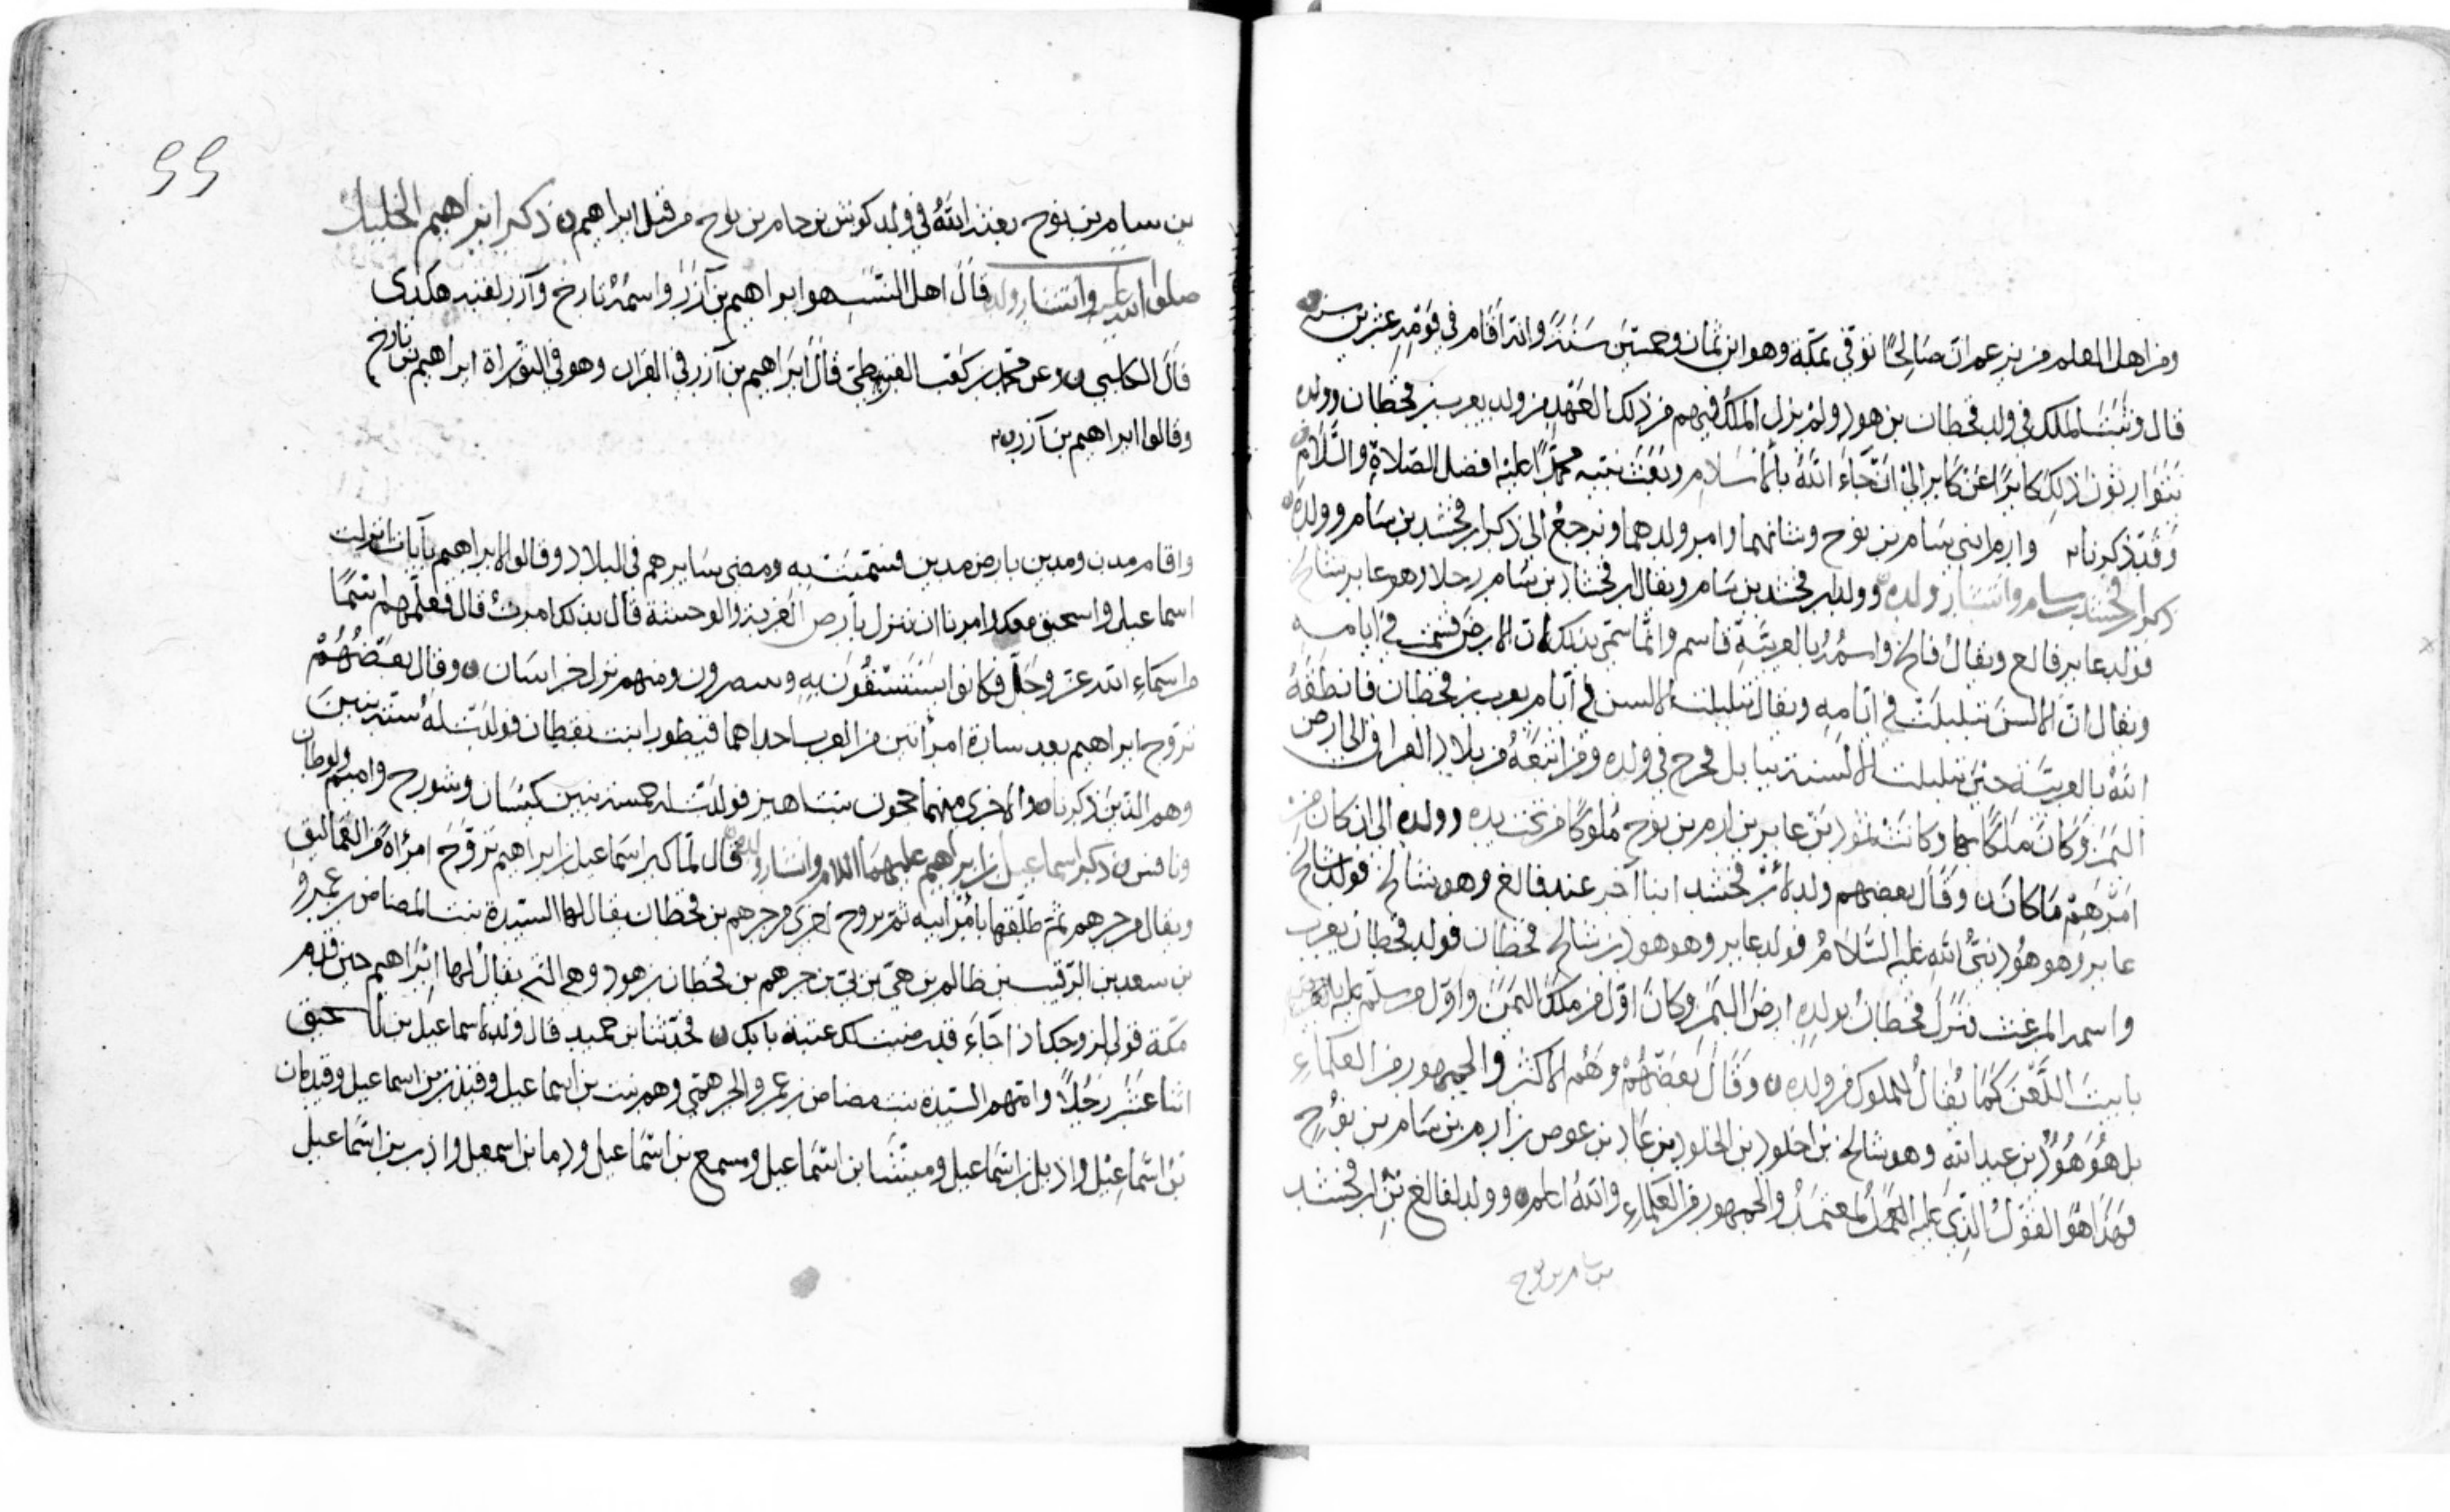 ومن اهل العلم من يزعم ان صالحا توفي بمكة وهو ابن ثمان وخمسين سنة وانه اقام في قومه عشرين سنة
قال وثبت الملك في ولد قحطان بن هود ولم يزل الملك فيهم من ذلك العهد من ولد يعرب بن قحطان وولده
يتوارثون ذلك كابرا عن كابر الى ان جاء الله بالاسلام وبعث نبيه محمدا عليه افضل الصلاة والسلام
وقد ذكرنا وارم ابني سام بن نوح وشانهما وامر ولدهما ونرجع الى ذكر ارفخشد بن سام وولده
ذكر ارفخشد بن سام وانتشار ولده وولد ارفخشد بن سام ويقال ارفخشاد بن سام رجلا وهو عابر بن شالخ
فولد عابر فالع ويقال فالخ واسمه بالعربية قاسم وانما سمي بذلك لان الارض قسمت في ايامه
ويقال ان الالسن تبلبلت في ايامه ويقال تبلبلت الالسن في ايام يعرب بن قحطان فانطقه
الله بالعربية حين تبلبلت الالسنة ببابل فخرج في ولده ومن اتبعه من بلاد العراق الى ارض
اليمن وكان ملكا بها وكانت ثمود بن عابر بن ارم بن نوح ملوكا من تحت يده وولده الى ان كان من
امرهم ما كان وقال بعضهم ولد لارفخشد ابنا آخر عند فالغ وهو شالخ فولد شالخ
عابر وهو هود نبي الله عليه السلام فولد عابر وهو هود بن شالخ قحطان فولد قحطان يعرب
واسمه المرعث فنزل قحطان بولده ارض اليمن وكان اول من ملك اليمن واول من سلم عليه
بابيت اللعن كما يقال للملوك من ولده وقال بعضهم وهم الاكثر والجمهور من العلماء
بل هو هود بن عبد الله وهو شالخ بن اخلود بن الخلود بن عاد بن عوص بن ارم بن سام بن نوح
فهذا هو القول الذي عليه العمل المعتمد والجمهور من العلماء والله اعلم وولد لفالغ بن ارفخشد
بن سام بن نوح
55
بن سام بن نوح بعثه الله في ولد كوش بن حام بن نوح من قبل ابراهيم ذكر ابراهيم الخليل
صلوات الله عليه وانتشار ولده قال اهل النسب هو ابراهيم بن آزر واسمه تارخ وآزر لقبه هكذى
قال الكلبي وعن محمد بن كعب القرظي قال ابراهيم بن آزر في القران وهو في التوراة ابراهيم بن تارخ
وقالوا ابراهيم بن آزر
واقام مدن ومدين بارض مدين فسميت به ومضى سايرهم في البلاد وقالوا لابراهيم يا ابانا انزلت
اسماعيل واسحق معك وامرتنا ان ننزل بارض الغربة والوحشة قال بذلك امرت قال فعلمهم اسما
من اسماء الله عز وجل فكانوا يستسقون به ويستنصرون ومنهم نزل خراسان وقال بعضهم
تزوج ابراهيم بعد سارة امرأتين من العرب احداهما قنطورا بنت يقطان فولدت له ستة بنين
وهم الذين ذكرنا والاخرى منهما حجون بنت اهين فولدت له خمسة بنين كيسان وشورح واميم ولوطان
ونافس ذكر اسماعيل بن ابراهيم عليهما السلام وانتشار ولده قال لما كبر اسماعيل بن ابراهيم تزوج امرأة من العماليق
ويقال من جرهم ثم طلقها بأمر ابيه ثم تزوج اخرى من جرهم بن قحطان يقال لها السيدة بنت المضاض بن عمرو
بن سعد بن الرقيب بن ظالم بن هي بن بي بن جرهم بن قحطان بن هود وهي التي يقال لها ابراهيم حين قدم
مكة قولي لزوجك اذا جاء قد رضيت لك عتبة بابك فحدثنا بن حميد قال ولد اسماعيل بن اسحق
اثنا عشر رجلا وامهم السيدة بنت مضاض بن عمرو الجرهمي وهم نبت بن اسماعيل وقيذر بن اسماعيل وقيدمان
بن اسماعيل واذبل بن اسماعيل وميشا بن اسماعيل ومسمع بن اسماعيل ودما بن اسمعيل واذر بن اسماعيل